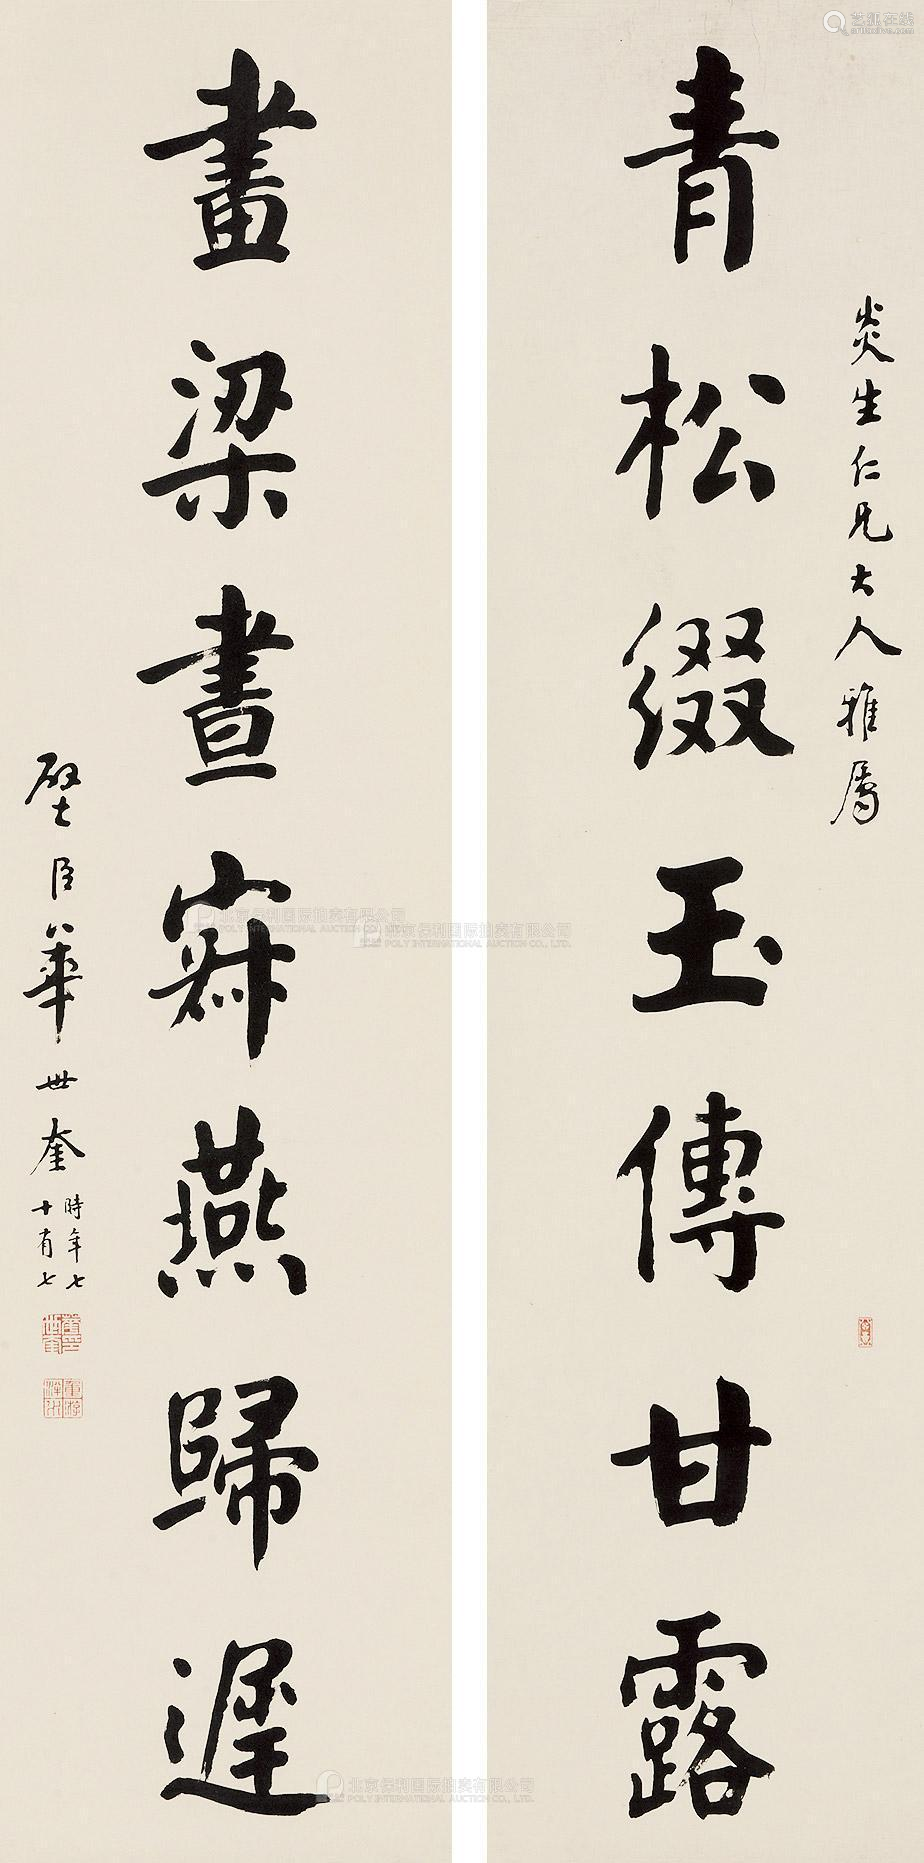 艺狐在线
artfoxlive.com
炎生仁兄大人雅屬
青松綴玉傳甘露
畫梁晝寂燕歸遲
壁臣華世奎
時年七
十有七
華印
世奎
重游
泮水
北京保利国际拍卖有限公司
POLY INTERNATIONAL AUCTION CO., LTD.
北京保利国际拍卖有限公司
POLY INTERNATIONAL AUCTION CO., LTD.
北京保利国际拍卖有限公司
POLY INTERNATIONAL AUCTION CO., LTD.